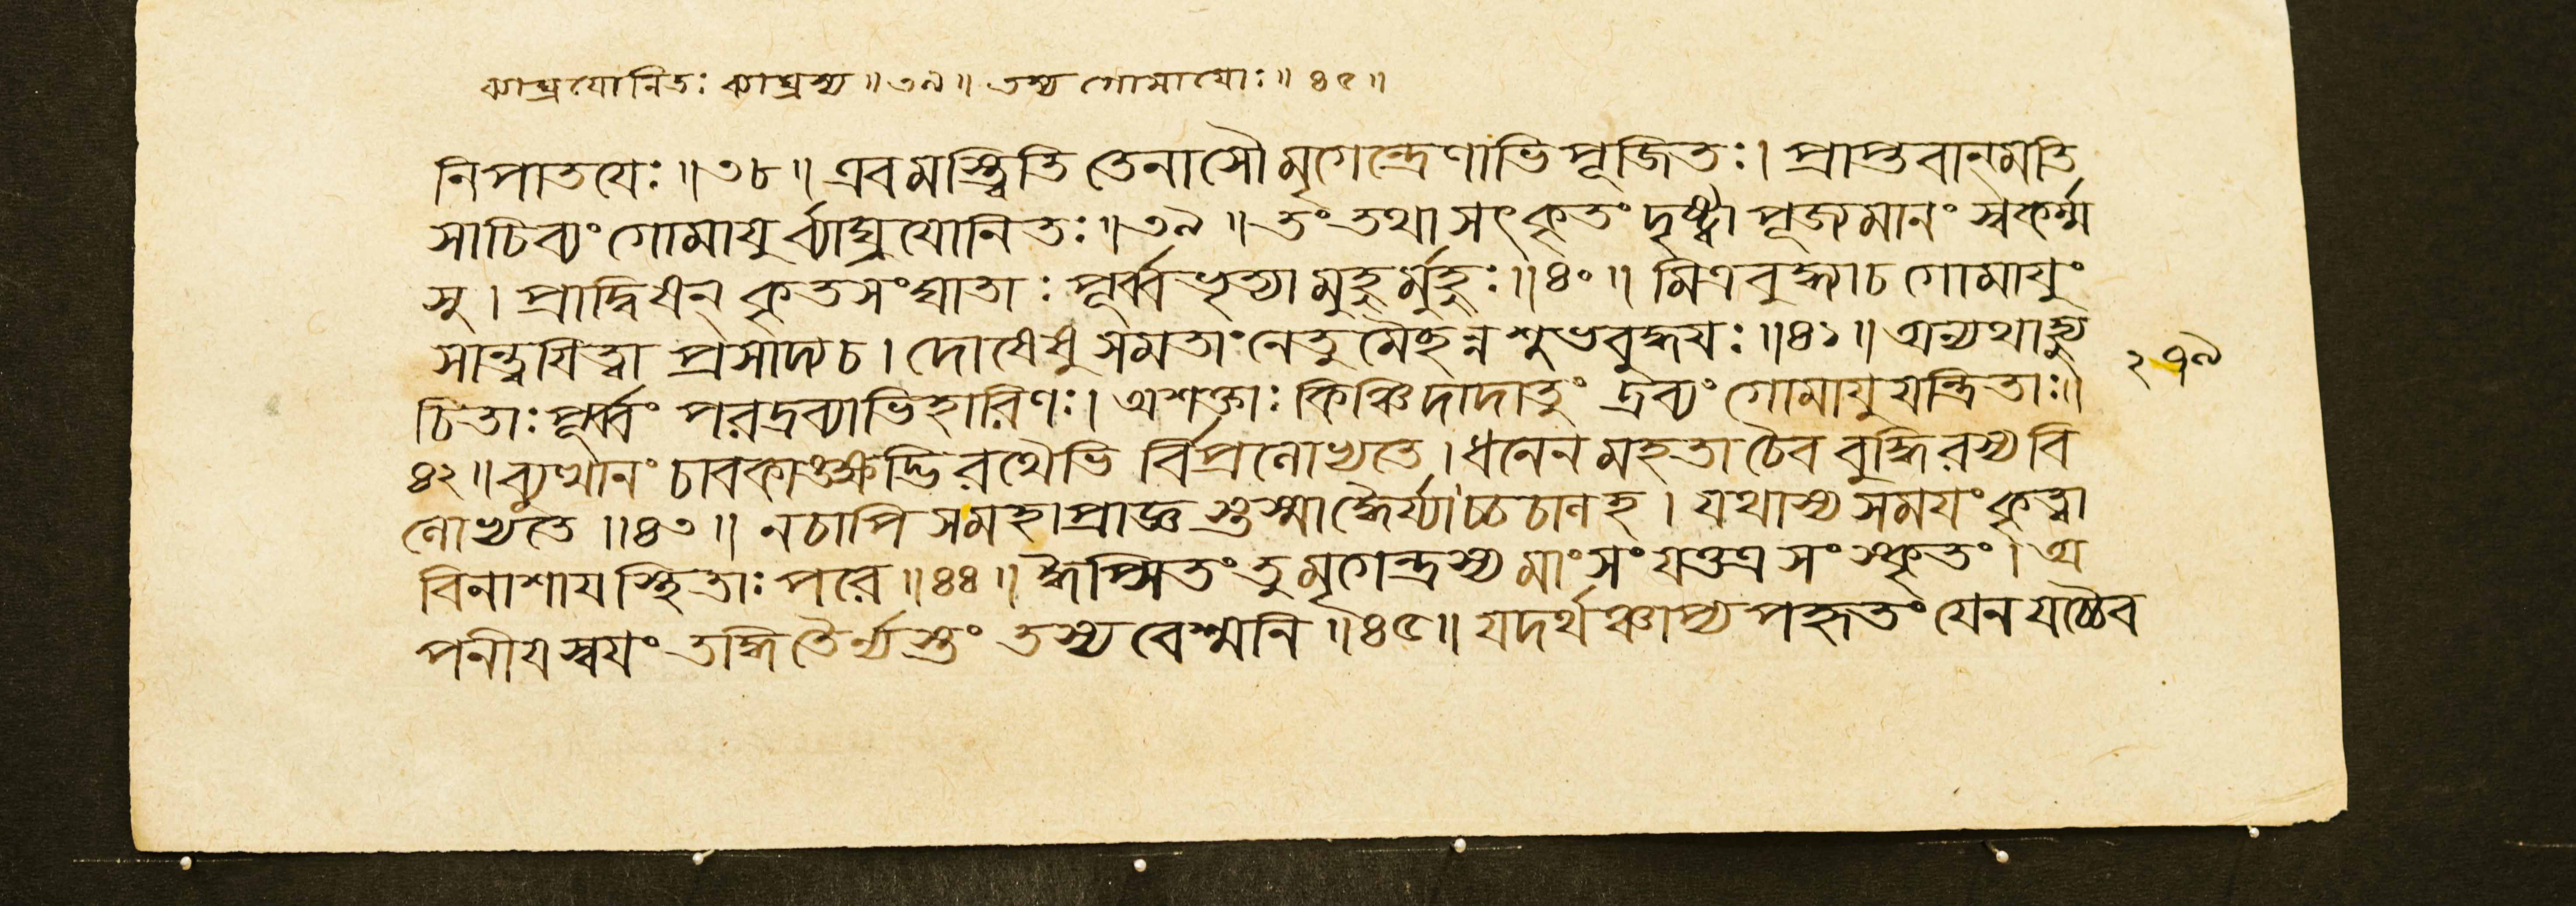 ব্যাঘ্রযোনিতঃ ব্যাঘ্রস্য ॥ ৩৯ ॥ তস্য গোমাযোঃ ॥ ৪৫ ॥
নিপাতযেঃ ॥ ৩৮ ॥ এবমস্ত্বিতি তেনাসৌ মৃগেন্দ্রেণাভিপূজিতঃ । প্রাপ্তবান্মতি
সাচিব্যং গোমাযুর্ব্যাঘ্রযোনিতঃ ॥ ৩৯ ॥ তং তথা সৎকৃতং দৃষ্ট্বা পূজ্যমানং স্বকর্ম্ম
সু । প্রাদ্বিষন্ কৃতসংঘাতাঃ পূর্ব্বভৃত্যা মুহুর্মুহুঃ ॥ ৪০ ॥ মিত্রবুদ্ধ্যা চ গোমাযুং
সান্ত্বযিত্বা প্রসাদ্য চ । দোষেষু সমতাং নেতুমৈছন্নশুভবুদ্ধযঃ ॥ ৪১ ॥ অন্যথাহ্যু
চিতাঃ পূর্ব্বং পরদ্রব্যাভিহারিণঃ । অশক্তাঃ কিঞ্চিদাদাতুং দ্রব্যং গোমাযুযন্ত্রিতাঃ ॥
৪২ ॥ ব্যুত্থানং চাবকাঙ্ক্ষদ্ভিরথৈভি র্বিপ্রলোভ্যতে । ধনেন মহতা চৈব বুদ্ধিরস্য বি
লোভ্যতে ॥ ৪৩ ॥ ন চাপি স মহাপ্রাজ্ঞস্তস্মাদ্ধৈর্য্যাচ্চচাল হ । যথাস্য সমযং কৃত্বা
বিনাশায স্থিতাঃ পরে ॥ ৪৪ ॥ ঈপ্সিতং তু মৃগেন্দ্রস্য মাংসং যত্তত্র সংস্কৃতং । অ
পনীয স্বযং তদ্ধি তৈর্ন্যস্তং তস্য বেশ্মনি ॥ ৪৫ ॥ যদর্থঞ্চাপ্যপহৃতং যেন যচ্চৈব
২৭৯